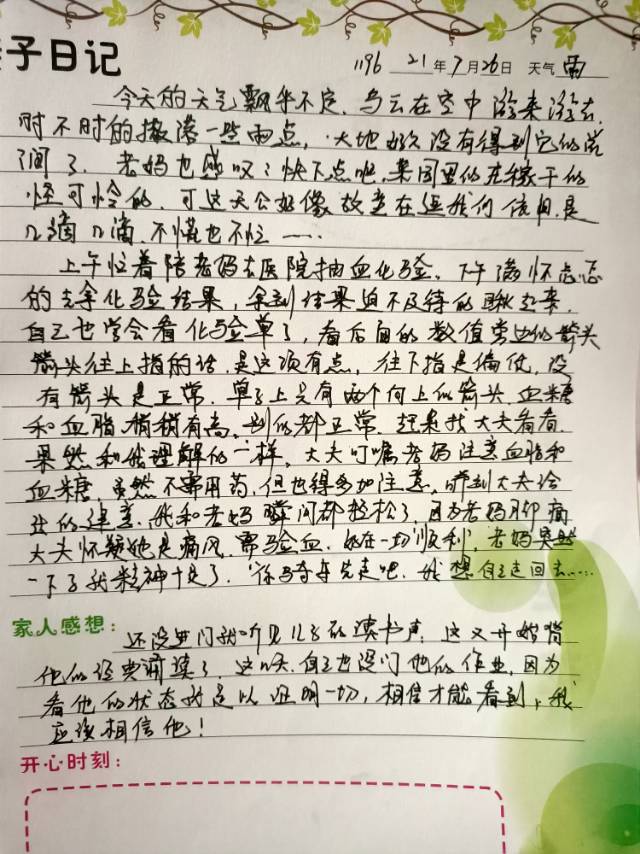 子日记
1196 21年7月26日 天气 雨
今天的天气飘乎不定,乌云在空中游来游去,
时不时的撒落一些雨点,大地好久没有得到它的滋
润了,老妈也感叹:快下点吧,菜园里的庄稼干的
怪可怜的,可这天公好像故意在逗我们信用,是
几滴几滴,不慌也不忙……
上午忙着陪老妈去医院抽血化验,下午满怀忐忑
的去拿化验结果,拿到结果迫不及待的瞅起来,
自己也学会看化验单了,看后面的数值旁边的箭头
箭头往上指的话,是这项有点,往下指是偏低,没
有箭头是正常,单子上只有两个向上的箭头,血糖
和血脂稍稍有高,别的都正常,赶紧找大夫看看,
果然和我理解的一样,大夫叮嘱老妈注意血脂和
血糖,虽然不需用药,但也得多加注意,听到大夫给
出的建意,我和老妈瞬间都轻松了,因为老妈脚痛
大夫怀疑她是痛风,需验血,好在一切顺利,老妈突然
一下子我精神十足了,"你马夺去先走吧,我想自己走回去……
家人感想:
还没进门就听见儿子的读书声,这又开始背
他的经典诵读了,这次自己也没问他的作业,因为
看他的状态就足以证明一切,相信才能看到,我
应该相信他!
开心时刻: